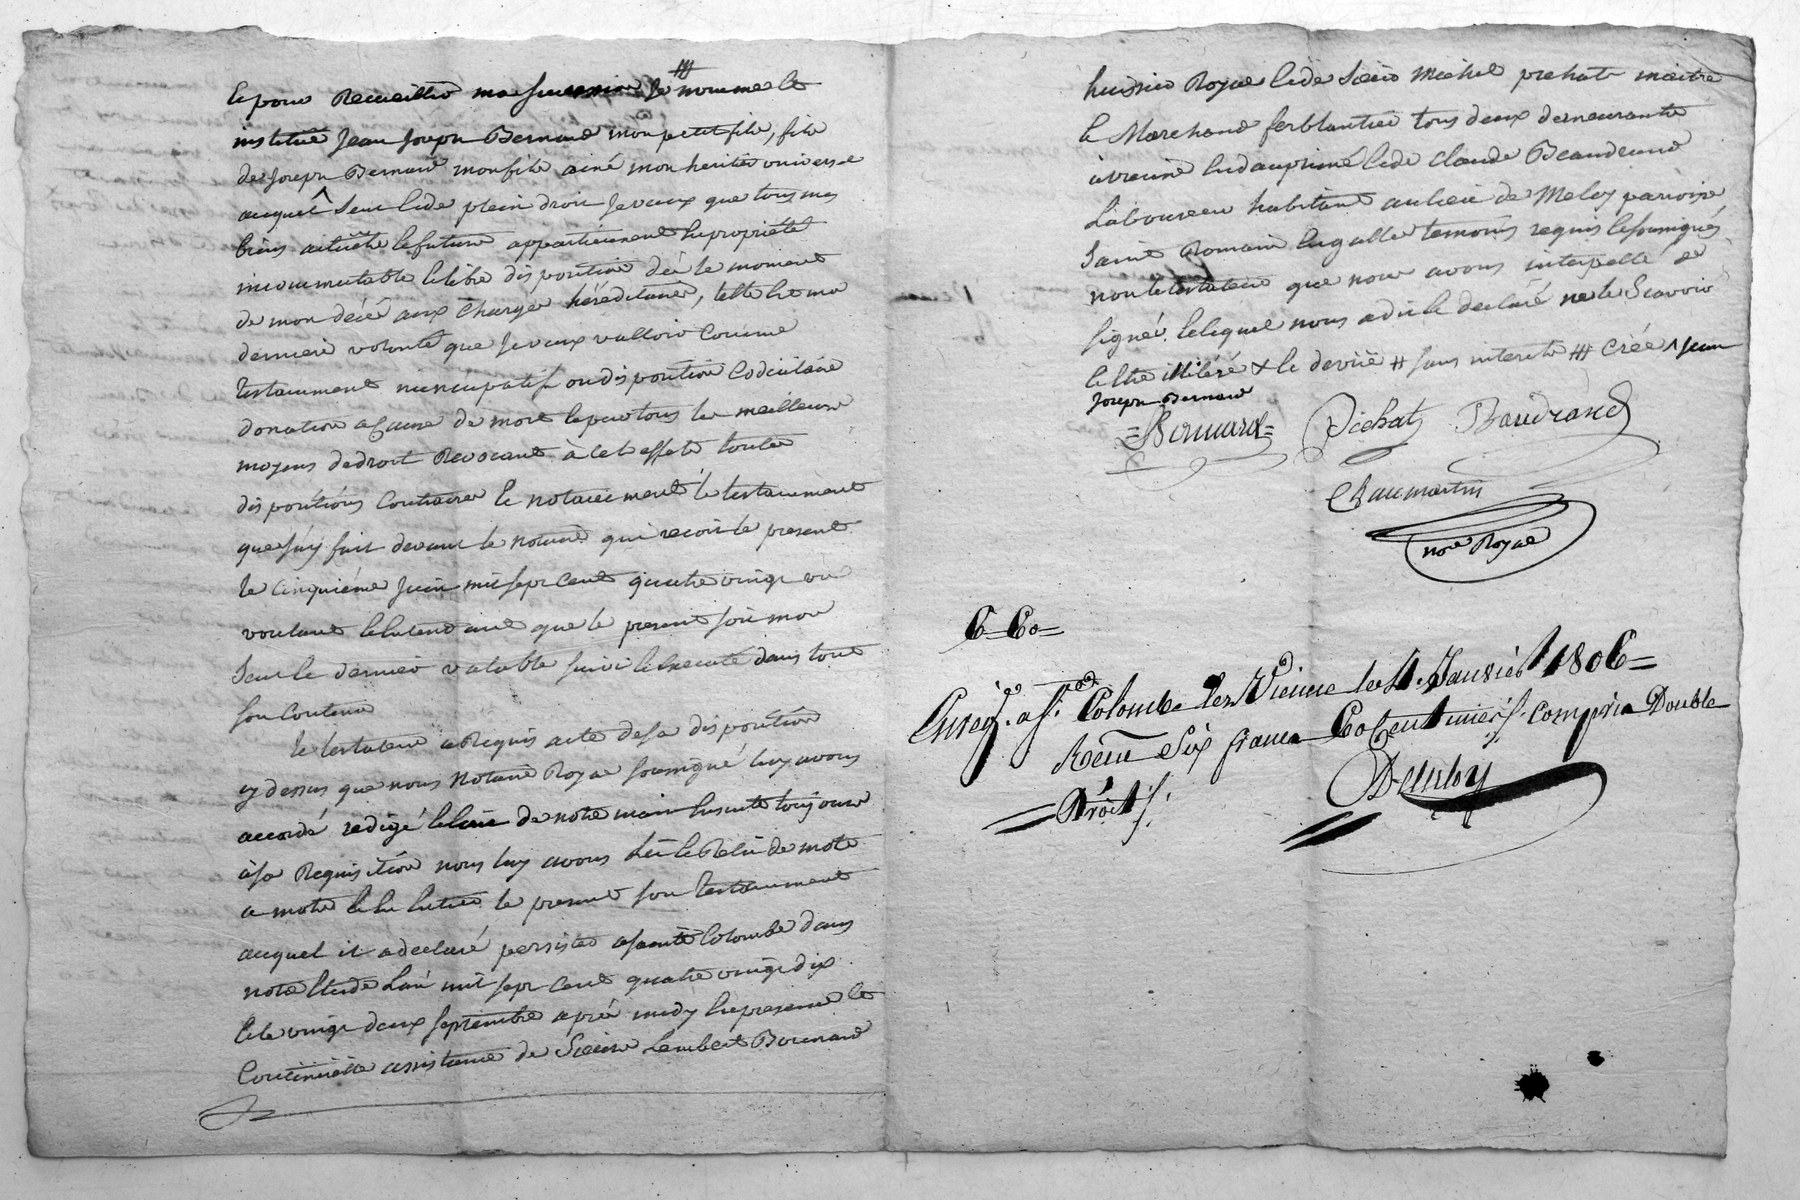 Et pour Recueillir ma succession je ⧻ nomme et
institüe Jean Joseph Bernard mon petit fils, fils
de Joseph Bernard mon fils ainé mon heritier universel
auquel ^ seul et de plein droit je veux que tous mes
biens actüels et future appartiennent en propriété
incommutable et libre disposition dès le moment
de mon décé aux charges héréditaires, telle est ma
derniere volonté que je veux valloir comme
testament nuncupatif ou disposition codicilaire
donation a cause de mort et par tous les meilleurs
moyens de droit Revocant à cet effet toutes
dispositions contraires et notamment le testament
que j'ay fait devant le notaire qui reçoit le present
le cinquiéme juin mil sept cent quatre vingt un
voulant et entendant que le present soit mon
seul et dernier valable suivi et execcuté dans tout
son contenu
Le testateur a Requis acte de sa disposition
cy dessus que nous Notaire Royal soussigné luy avons
accordé redigé et ecrit de notre main ensuite toujours
à sa Requisition nous luy avons Lû et Relû de mots
a mots et en entier le present son testament
auquel il a declaré persister a sainte Colombe dans
notre Etude L'an mil sept cent quatre vingt dix
et le vingt deux septembre après midy en presence et
continüelle assistance de Sieur Lambert Bournard
huissier Royal et de Sieur Michel pichat maitre
et Marchand ferblantier tous deux demeurants
a vienne en dauphiné et de Claude Beaudrand
Laboureur habitant au lieu de Meley parroisse
saint Romain en galle temoins requis et soussignés
non le testateur que nous avons interpellé de
signer lequel nous a dit et declaré ne le scavoir
et être illiteré + le devüe # sans interets ⧻ créé ^ jean
Joseph Bernard
=Bournard= Pichat Baudrand
Chaumartin
nore Royal
C Co=
Enregé. a Ste. Colombe les Vienne le 4 Janvier 1806=
Reçu Six francs Co Centimes compris Double
Droit